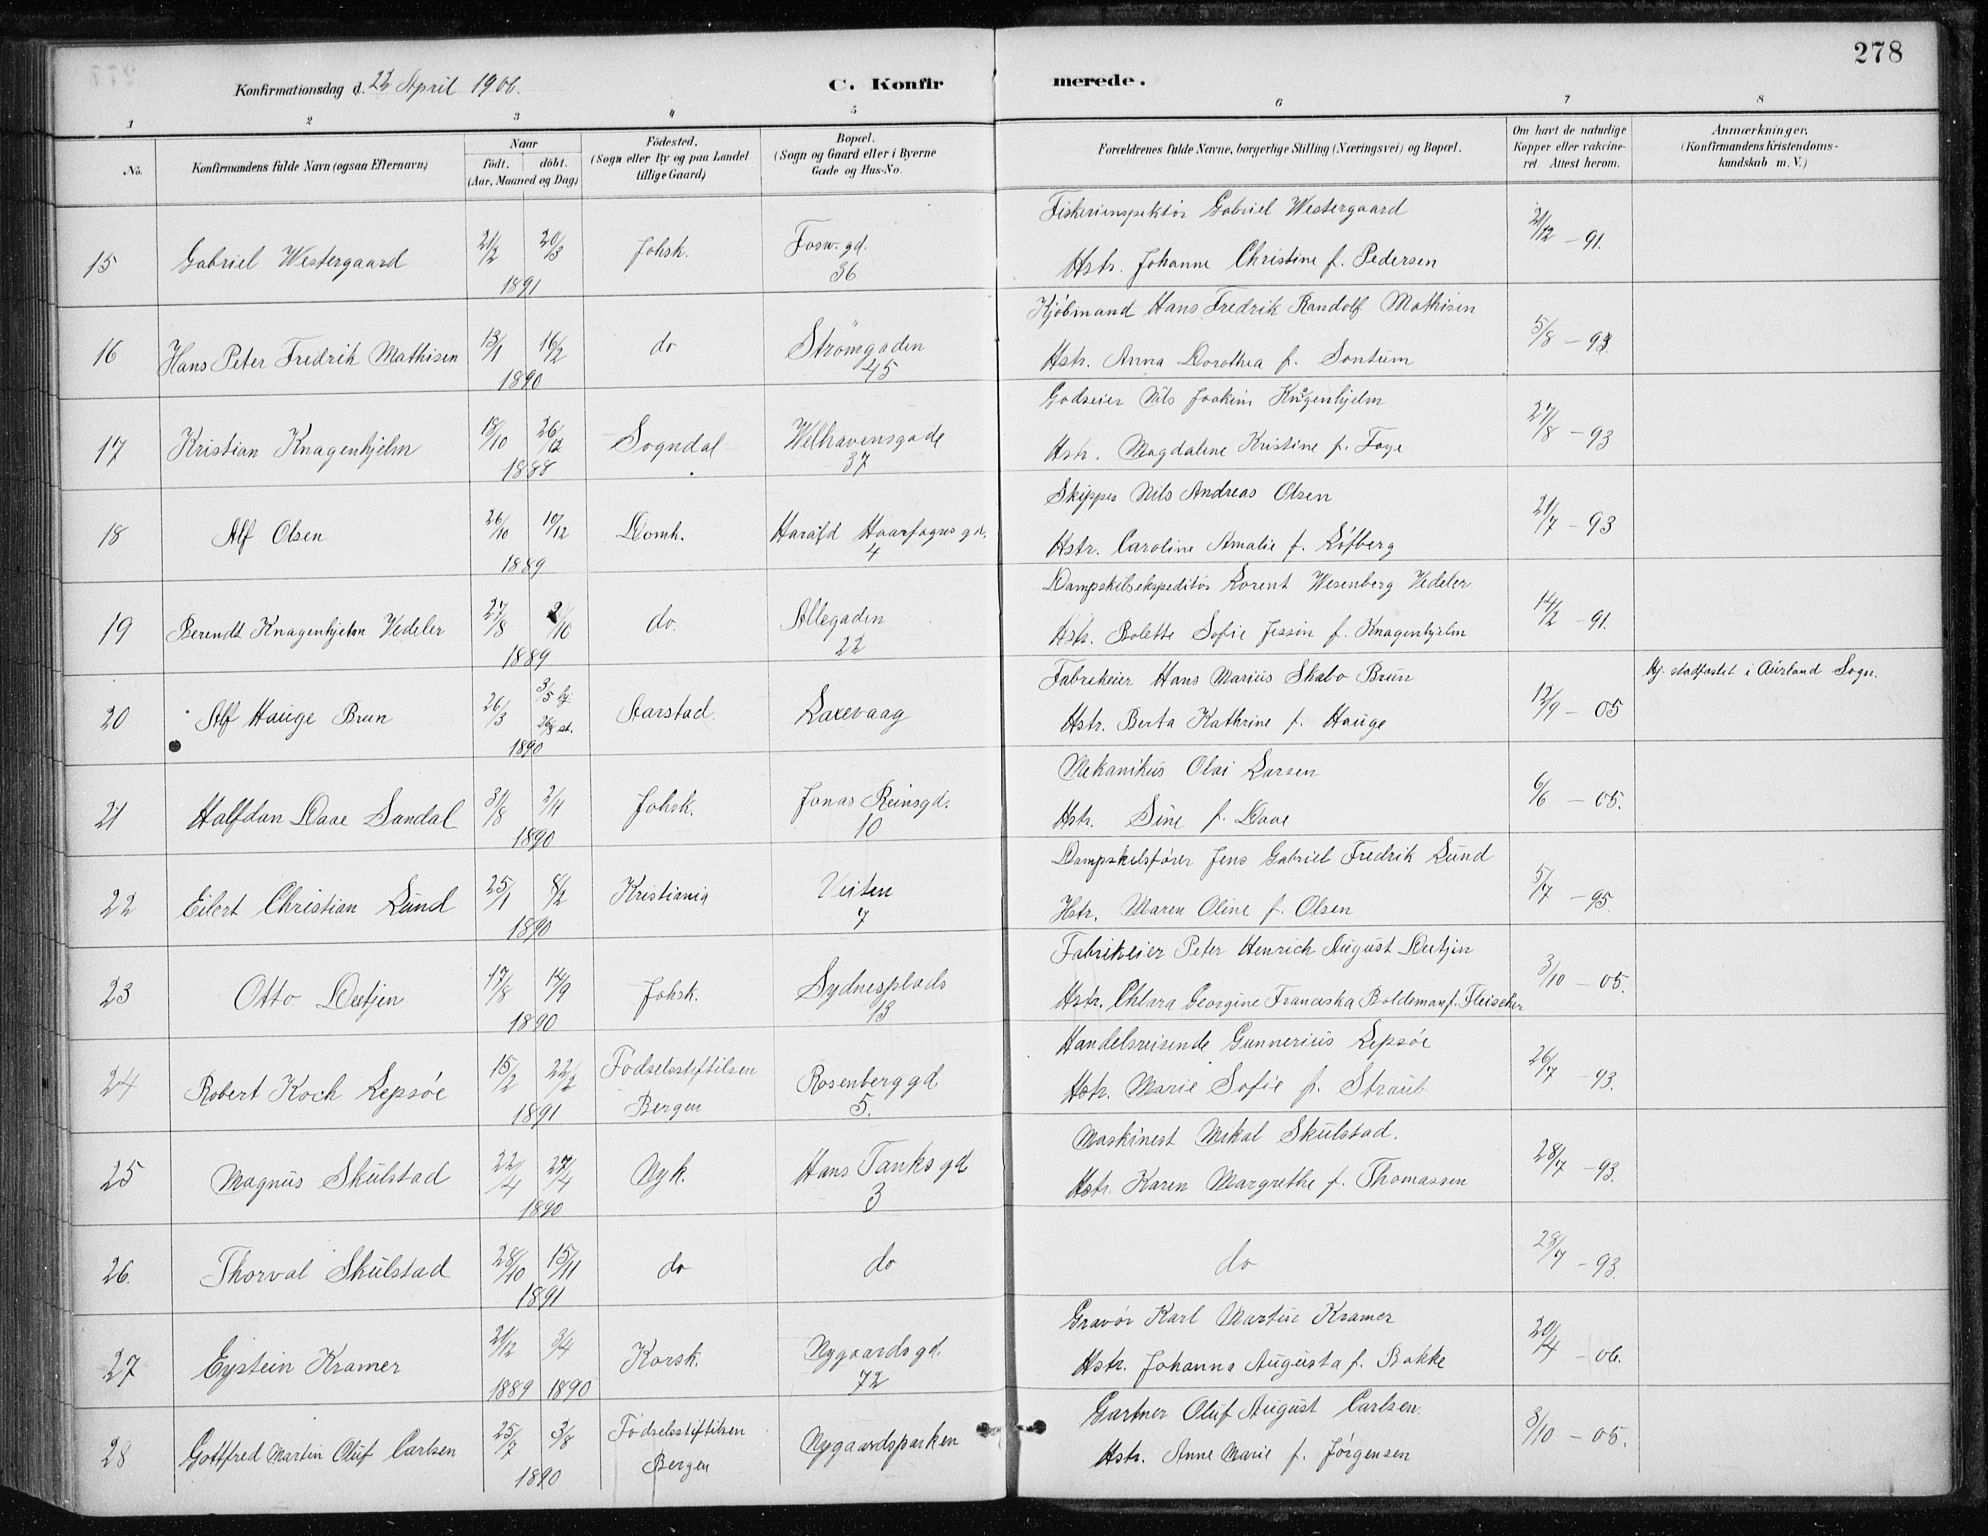 278
Konfirmationsdag d. 22 April 1906.
C. Konfirmerede.
1 2 3 4 5 6 7 8
No.
Konfirmandens fulde Navn (ogsaa Efternavn)
Naar
födt. döbt.
(Aar, Maaned og Dag)
Födested.
(Sogn eller By og paa Landet
tillige Gaard)
Bopæl.
(Sogn og Gaard eller i Byerne
Gade og Hus-No.
Forældrenes fulde Navne, borgerlige Stilling (Næringsvei) og Bopæl.
Om havt de naturlige
Kopper eller vakcine-
ret Attest herom.
Anmærkninger.
(Konfirmandens Kristendoms-
kundskab m. V.)
15 Gabriel Westergaard 21/2 20/3 1891 Johsk. Fosw. gd. 36
Fiskeriinspektör Gabriel Westergaard
Hstr. Johanne Christine f. Pedersen
21/12 - 91.
16 Hans Peter Fredrik Mathisen 13/1 16/2 1890 do Strömgaden 45
Kjöbmand Hans Fredrik Randolf Mathisen
Hstr. Anna Dorothea f. Sontum
5/8 - 93
17 Kristian Knagenhjelm 18/10 26/12 1888 Sogndal Welhavensgade 37
Godseier Nils Joakim Knagenhjelm
Hstr. Magdalene Kristine f. Foye
27/8 - 93
18 Alf Olsen 26/10 10/12 1889 Domk. Harald Haarfagres gd. 4
Skipper Nils Andreas Olsen
Hstr. Caroline Amalie f. Löfberg
21/7 - 93
19 Berendt Knagenhjelm Vedeler 27/8 2/10 1889 do. Allegaden 22
Dampskibsekspeditör Lorent Wesenberg Vedeler
Hstr. Bolette Sofie Jessin f. Knagenhjelm
14/2 - 91.
20 Alf Hauge Brun 26/3 3/5 hj. 26/8 st. 1890 Aarstad. Laxevaag
Fabrikeier Hans Marius Skabo Brun
Hstr. Berta Kathrine f. Hauge
12/9 - 05
Hj. stadfæstet i Aurland Sogn.
21 Halfdan Daae Sandal 31/8 2/11 1890 Johsk. Jonas Reinsgd. 10
Mekanikus Olai Larsen
Hstr. Sine f. Daae
6/6 - 05.
22 Eilert Christian Lund 25/1 8/2 1890 Kristiania Veiten 7
Dampskibsförer Jens Gabriel Fredrik Lund
Hstr. Maren Oline f. Olsen
5/7 - 95
23 Otto Detjen 17/8 14/9 1890 Johsk. Sydnesplads 13
Fabrikeier Peter Henrich August Detjen
Hstr. Chlara Georgine Franciska Boldeman f. Fleischer
3/10 - 05.
24 Robert Koch Lepsöe 15/2 22/2 1891 Födselsstiftelsen Bergen Rosenberg gd 5.
Handelsreisende Gunnerius Lepsöe
Hstr. Marie Sofie f. Straub
26/7 - 93.
25 Magnus Skulstad 22/4 27/4 1890 Nyk. Hans Tanks gd 3
Maskinest Mikal Skulstad.
Hstr. Karen Margrethe f. Thomassen
28/7 - 93.
26. Thorval Skulstad 28/10 15/11 1891 do do do 28/7 - 93.
27 Eystein Kramer 21/12 3/4 1889 1890 Korsk. Nygaardsgd. 72
Gravör Karl Martin Kramer
Hstr. Johanna Augusta f. Bakke
20/4 - 06.
28 Gottfred Martin Oluf Carlsen 25/7 3/8 1890 Födselsstiftelsen Bergen Nygaardsparken
Gartner Oluf August Carlsen.
Hstr. Anne Marie f. Jörgensen
3/10 - 05.